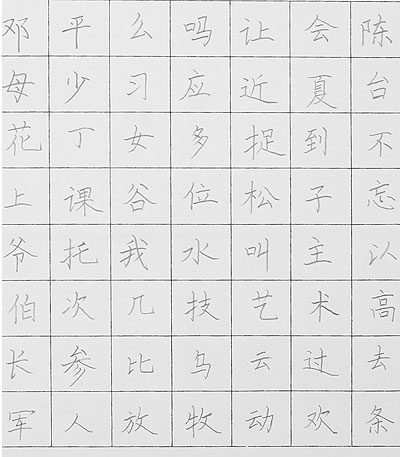 邓平么吗让会陈
母少习应近夏台
花丁女多捉到不
上课谷位松子忘
爷托我水叫主认
伯次几技艺术高
长参比乌云过去
军人放牧动欢条